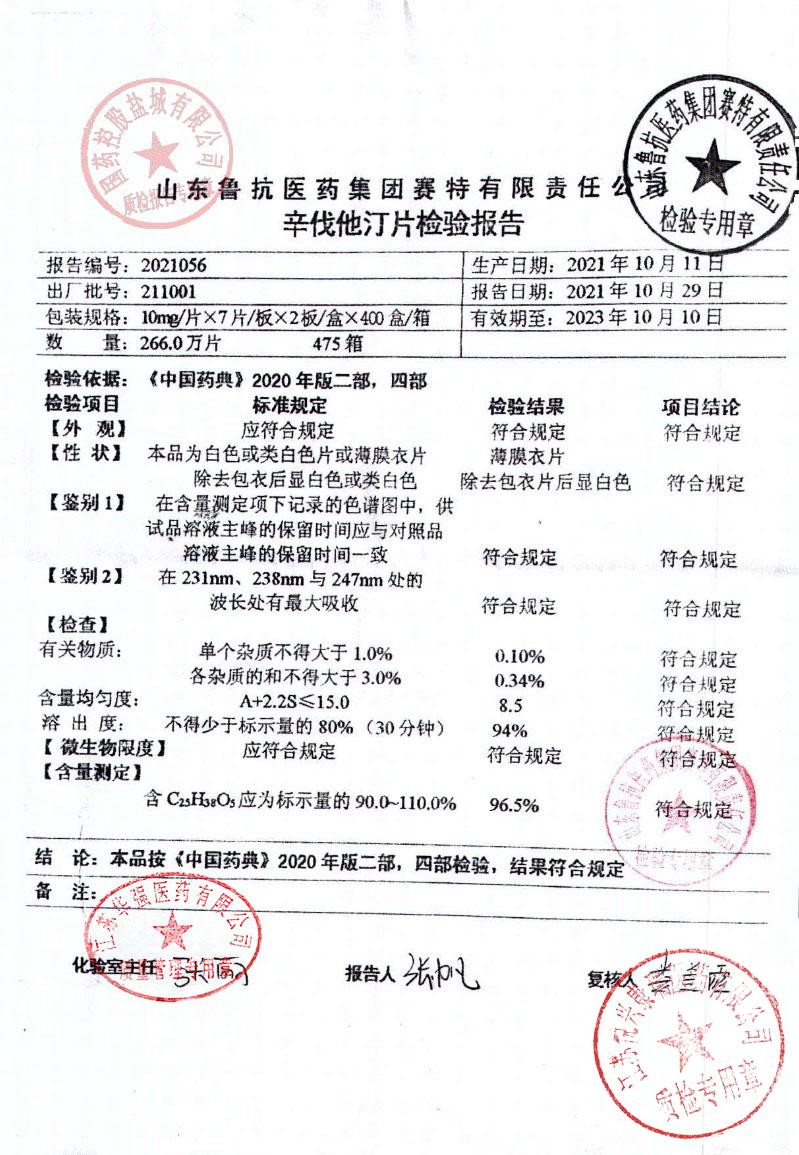 国药控股盐城有限公司
质检报告专用章
鲁抗医药集团赛特有限责任公司
检验专用章
山东鲁抗医药集团赛特有限责任公司
辛伐他汀片检验报告
报告编号：2021056 生产日期：2021年10月11日
出厂批号：211001 报告日期：2021年10月29日
包装规格：10mg/片×7片/板×2板/盒×400盒/箱 有效期至：2023年10月10日
数 量：266.0万片 475箱
检验依据：《中国药典》2020年版二部，四部
检验项目 标准规定 检验结果 项目结论
【外 观】 应符合规定 符合规定 符合规定
【性 状】 本品为白色或类白色片或薄膜衣片 薄膜衣片
除去包衣后显白色或类白色 除去包衣片后显白色 符合规定
【鉴别1】 在含量测定项下记录的色谱图中，供
试品溶液主峰的保留时间应与对照品
溶液主峰的保留时间一致 符合规定 符合规定
【鉴别2】 在231nm、238nm与247nm处的
波长处有最大吸收 符合规定 符合规定
【检查】
有关物质： 单个杂质不得大于1.0% 0.10% 符合规定
各杂质的和不得大于3.0% 0.34% 符合规定
含量均匀度： A+2.2S≤15.0 8.5 符合规定
溶 出 度： 不得少于标示量的80%（30分钟） 94% 符合规定
【 微生物限度】 应符合规定 符合规定 符合规定
【含量测定】
含C25H38O5应为标示量的90.0~110.0% 96.5% 符合规定
结 论：本品按《中国药典》2020年版二部，四部检验，结果符合规定
备 注：
江苏华强医药有限公司
质量管理专用章
化验室主任 报告人 张帆 复核人
质检专用章